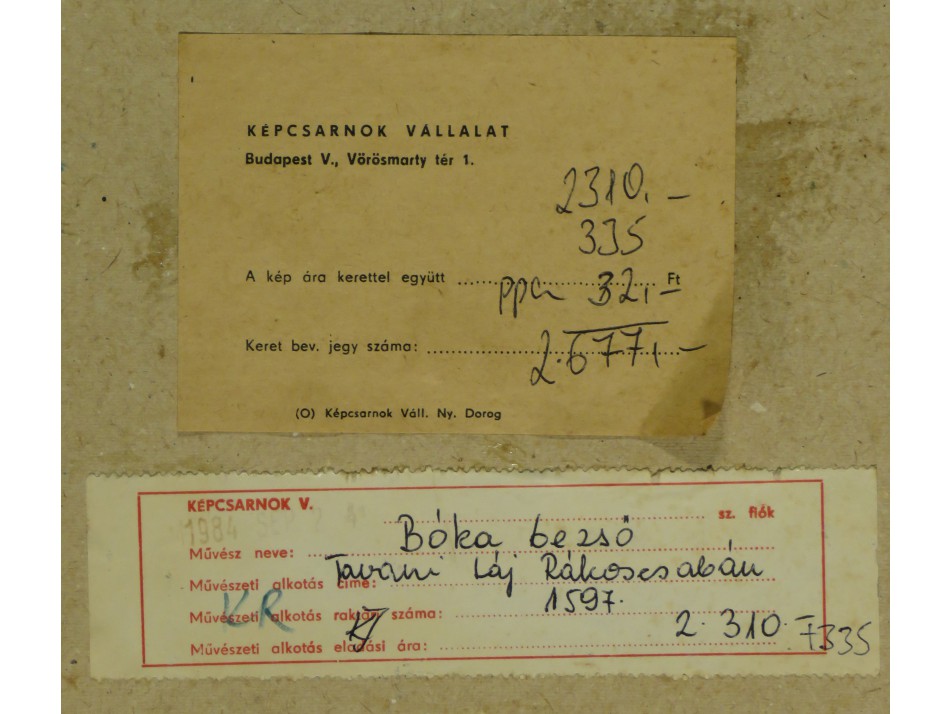 KÉPCSARNOK VÁLLALAT
Budapest V., Vörösmarty tér 1.
2310.–
335
A kép ára kerettel együtt ppa 32,– Ft
Keret bev. jegy száma: 2.677,–
(O) Képcsarnok Váll. Ny. Dorog
KÉPCSARNOK V. sz. fiók
1984
Művész neve: Bóka Dezső
Művészeti alkotás címe: Tavaszi táj Rákoscsabán
Művészeti alkotás raktári száma: 1597.
KR
Művészeti alkotás eladási ára: 2.310.– F335